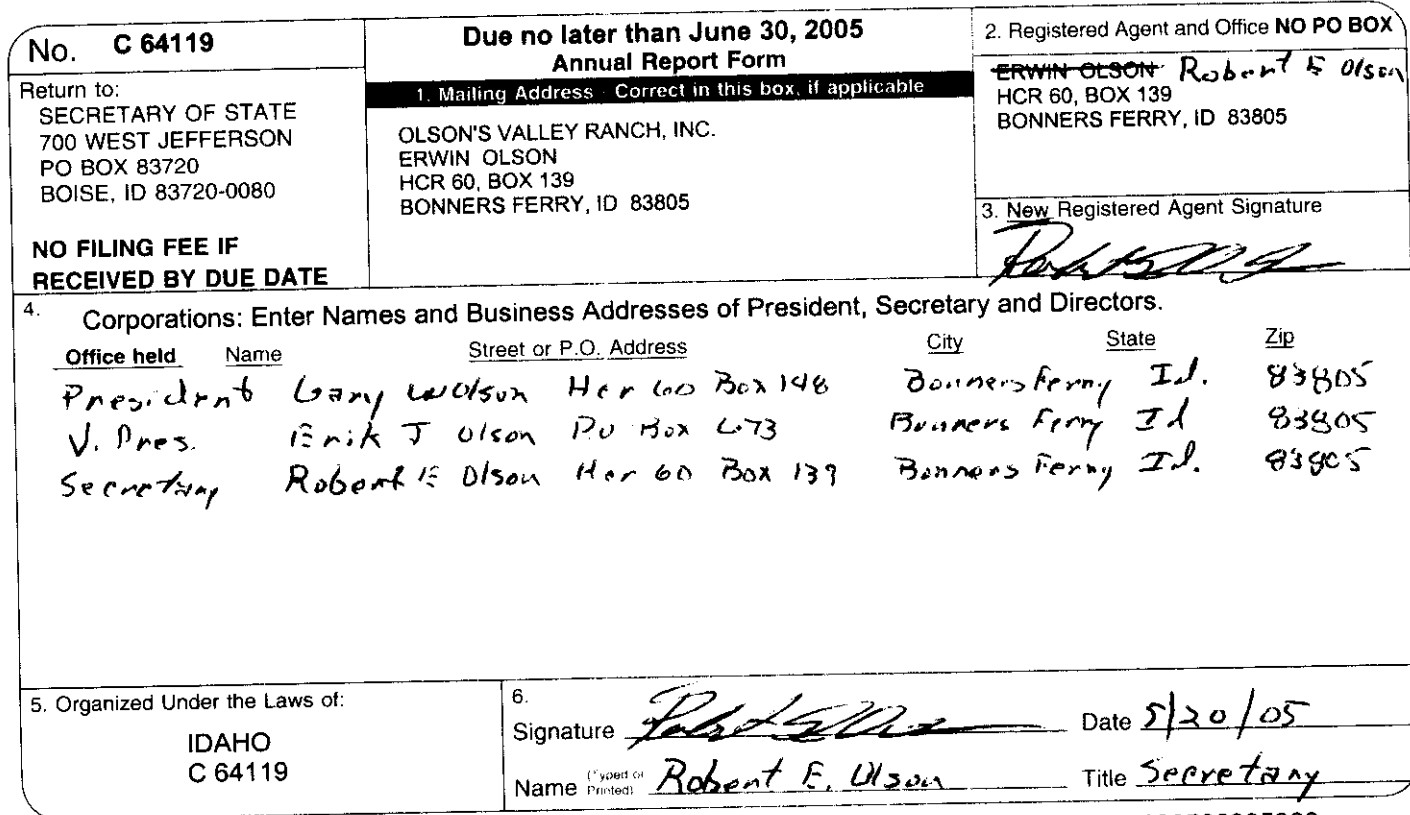 No. C 64119
Return to:
SECRETARY OF STATE
700 WEST JEFFERSON
PO BOX 83720
BOISE, ID 83720-0080
NO FILING FEE IF
RECEIVED BY DUE DATE
Due no later than June 30, 2005
Annual Report Form
1. Mailing Address - Correct in this box, if applicable
OLSON'S VALLEY RANCH, INC.
ERWIN OLSON
HCR 60, BOX 139
BONNERS FERRY, ID 83805
2. Registered Agent and Office NO PO BOX
ERWIN OLSON Robert E Olson
HCR 60, BOX 139
BONNERS FERRY, ID 83805
3. New Registered Agent Signature
4. Corporations: Enter Names and Business Addresses of President, Secretary and Directors.
Office held Name Street or P.O. Address City State Zip
President Gary W Olson Hcr 60 Box 148 Bonners Ferry Id. 83805
V. Pres. Erik J Olson PO Box 673 Bonners Ferry Id 83805
Secretary Robert E Olson Hcr 60 Box 139 Bonners Ferry Id. 83805
5. Organized Under the Laws of:
IDAHO
C 64119
6.
Signature Date 5/20/05
Name (Typed or Printed) Robert E. Olson Title Secretary